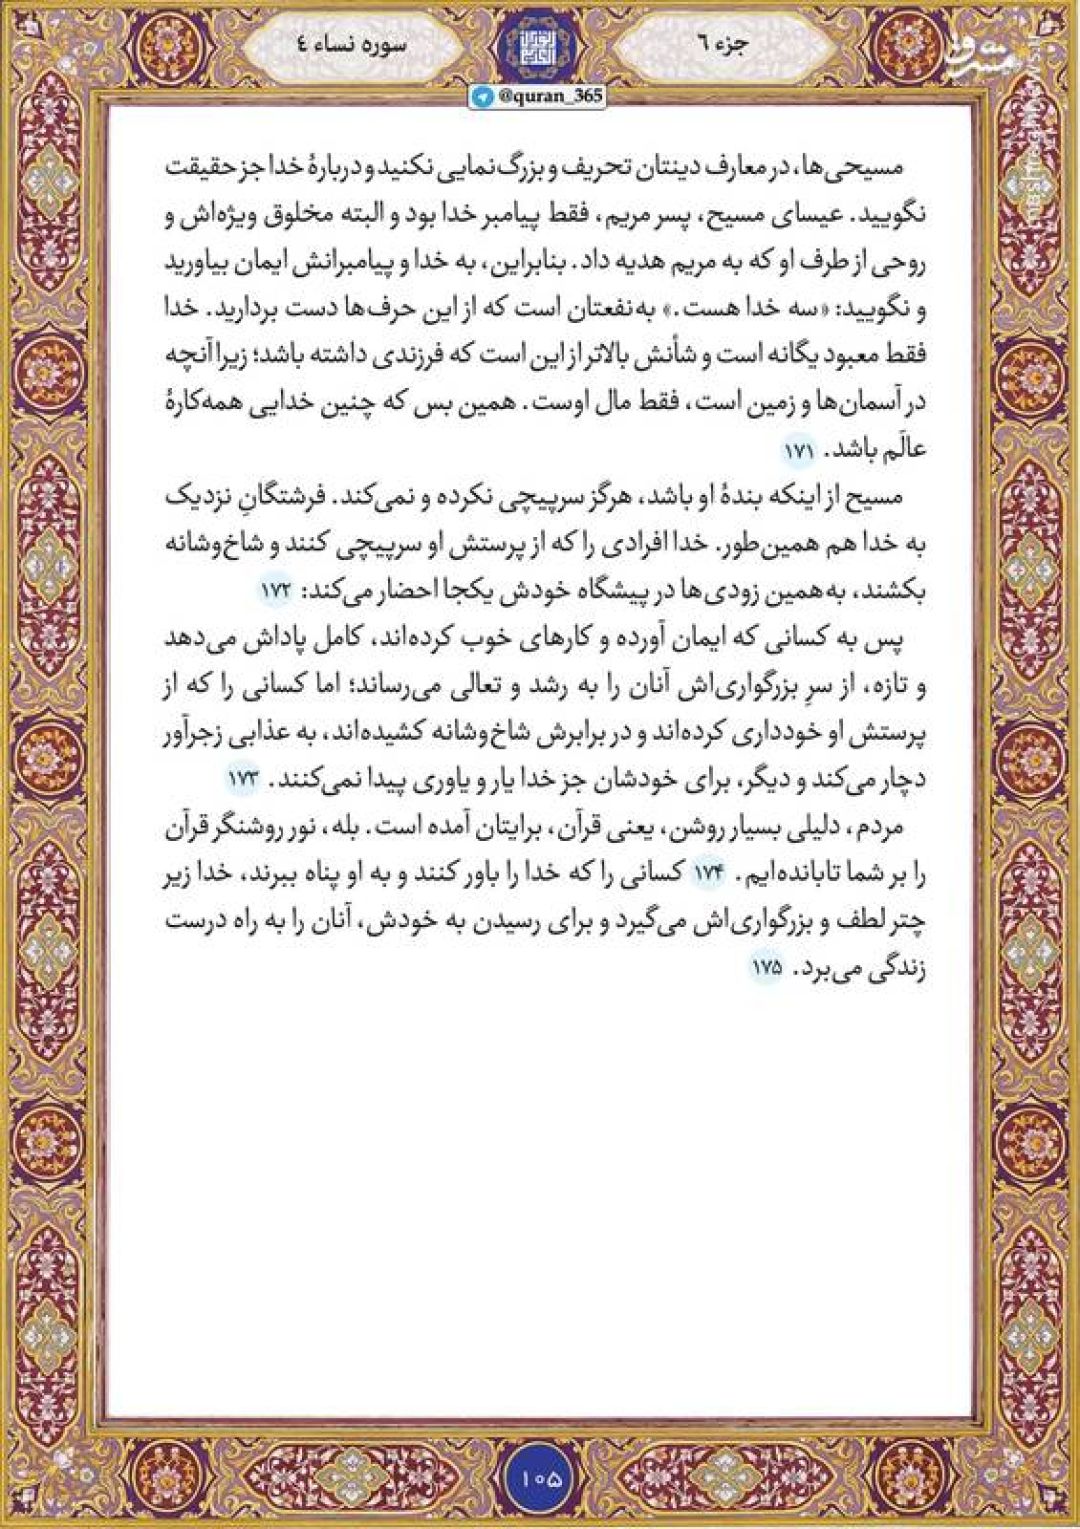 جزء ٦
سوره نساء ٤
@quran_365
مشرق
mashreghnews.ir
مسیحی‌ها، در معارف دینتان تحریف و بزرگ‌نمایی نکنید و دربارهٔ خدا جز حقیقت
نگویید. عیسای مسیح، پسر مریم، فقط پیامبر خدا بود و البته مخلوق ویژه‌اش و
روحی از طرف او که به مریم هدیه داد. بنابراین، به خدا و پیامبرانش ایمان بیاورید
و نگویید: «سه خدا هست.» به‌نفعتان است که از این حرف‌ها دست بردارید. خدا
فقط معبود یگانه است و شأنش بالاتر از این است که فرزندی داشته باشد؛ زیرا آنچه
در آسمان‌ها و زمین است، فقط مال اوست. همین بس که چنین خدایی همه‌کارهٔ
عالَم باشد. ۱۷۱
مسیح از اینکه بندهٔ او باشد، هرگز سرپیچی نکرده و نمی‌کند. فرشتگانِ نزدیک
به خدا هم همین‌طور. خدا افرادی را که از پرستش او سرپیچی کنند و شاخ‌وشانه
بکشند، به‌همین زودی‌ها در پیشگاه خودش یکجا احضار می‌کند: ۱۷۲
پس به کسانی که ایمان آورده و کارهای خوب کرده‌اند، کامل پاداش می‌دهد
و تازه، از سرِ بزرگواری‌اش آنان را به رشد و تعالی می‌رساند؛ اما کسانی را که از
پرستش او خودداری کرده‌اند و در برابرش شاخ‌وشانه کشیده‌اند، به عذابی زجرآور
دچار می‌کند و دیگر، برای خودشان جز خدا یار و یاوری پیدا نمی‌کنند. ۱۷۳
مردم، دلیلی بسیار روشن، یعنی قرآن، برایتان آمده است. بله، نور روشنگر قرآن
را بر شما تابانده‌ایم. ۱۷۴ کسانی را که خدا را باور کنند و به او پناه ببرند، خدا زیر
چتر لطف و بزرگواری‌اش می‌گیرد و برای رسیدن به خودش، آنان را به راه درست
زندگی می‌برد. ۱۷۵
۱۰۵